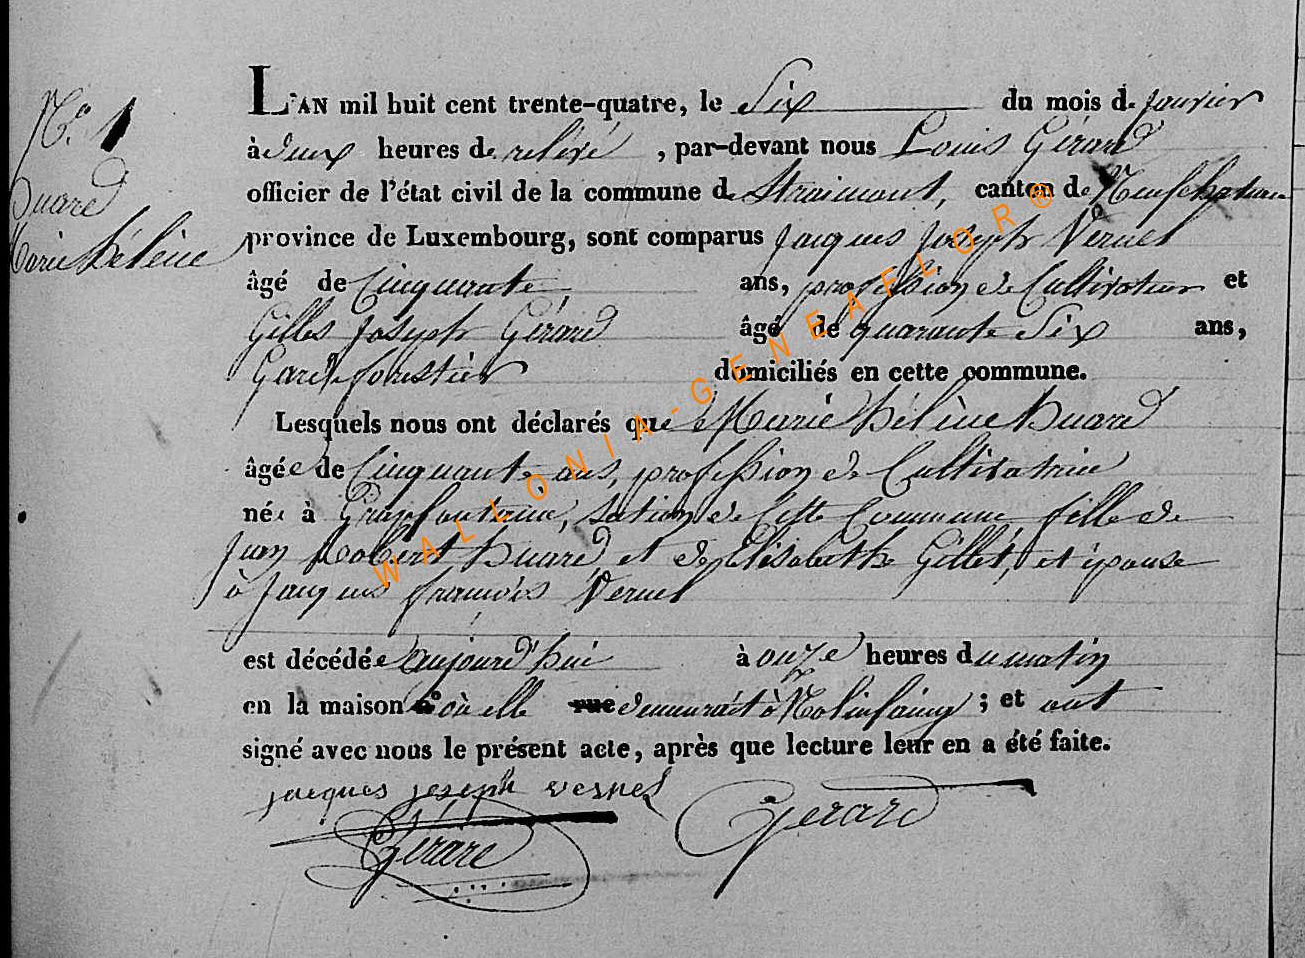 N.o 1
Huard
Marie hélène
L'AN mil huit cent trente-quatre, le Six du mois de janvier
à deux heures de relevé, par-devant nous Louis Gérard
officier de l'état civil de la commune de Straimont, canton de Neufchateau
province de Luxembourg, sont comparus Jacques Joseph Vernel
âgé de Cinquante ans, profession de Cultivateur et
Gilles Joseph Gérard âgé de quarante Six ans,
Garde forestier domiciliés en cette commune.
Lesquels nous ont déclarés que Marie hélène huard
âgée de Cinquante ans, profession de Cultivatrice
née à Grapfontaine, Section de Cette Commune, fille de
Jean Robert huard, et de Elisabethe Gillet, et épouse
à Jacques françois Vernel
est décédée aujourd'hui à onze heures du matin
en la maison où elle rue demeurait à Nolinfaing ; et ont
signé avec nous le présent acte, après que lecture leur en a été faite.
jacques joseph vernel Gerard
Gérard
WALLONIA-GENEAFLOR®